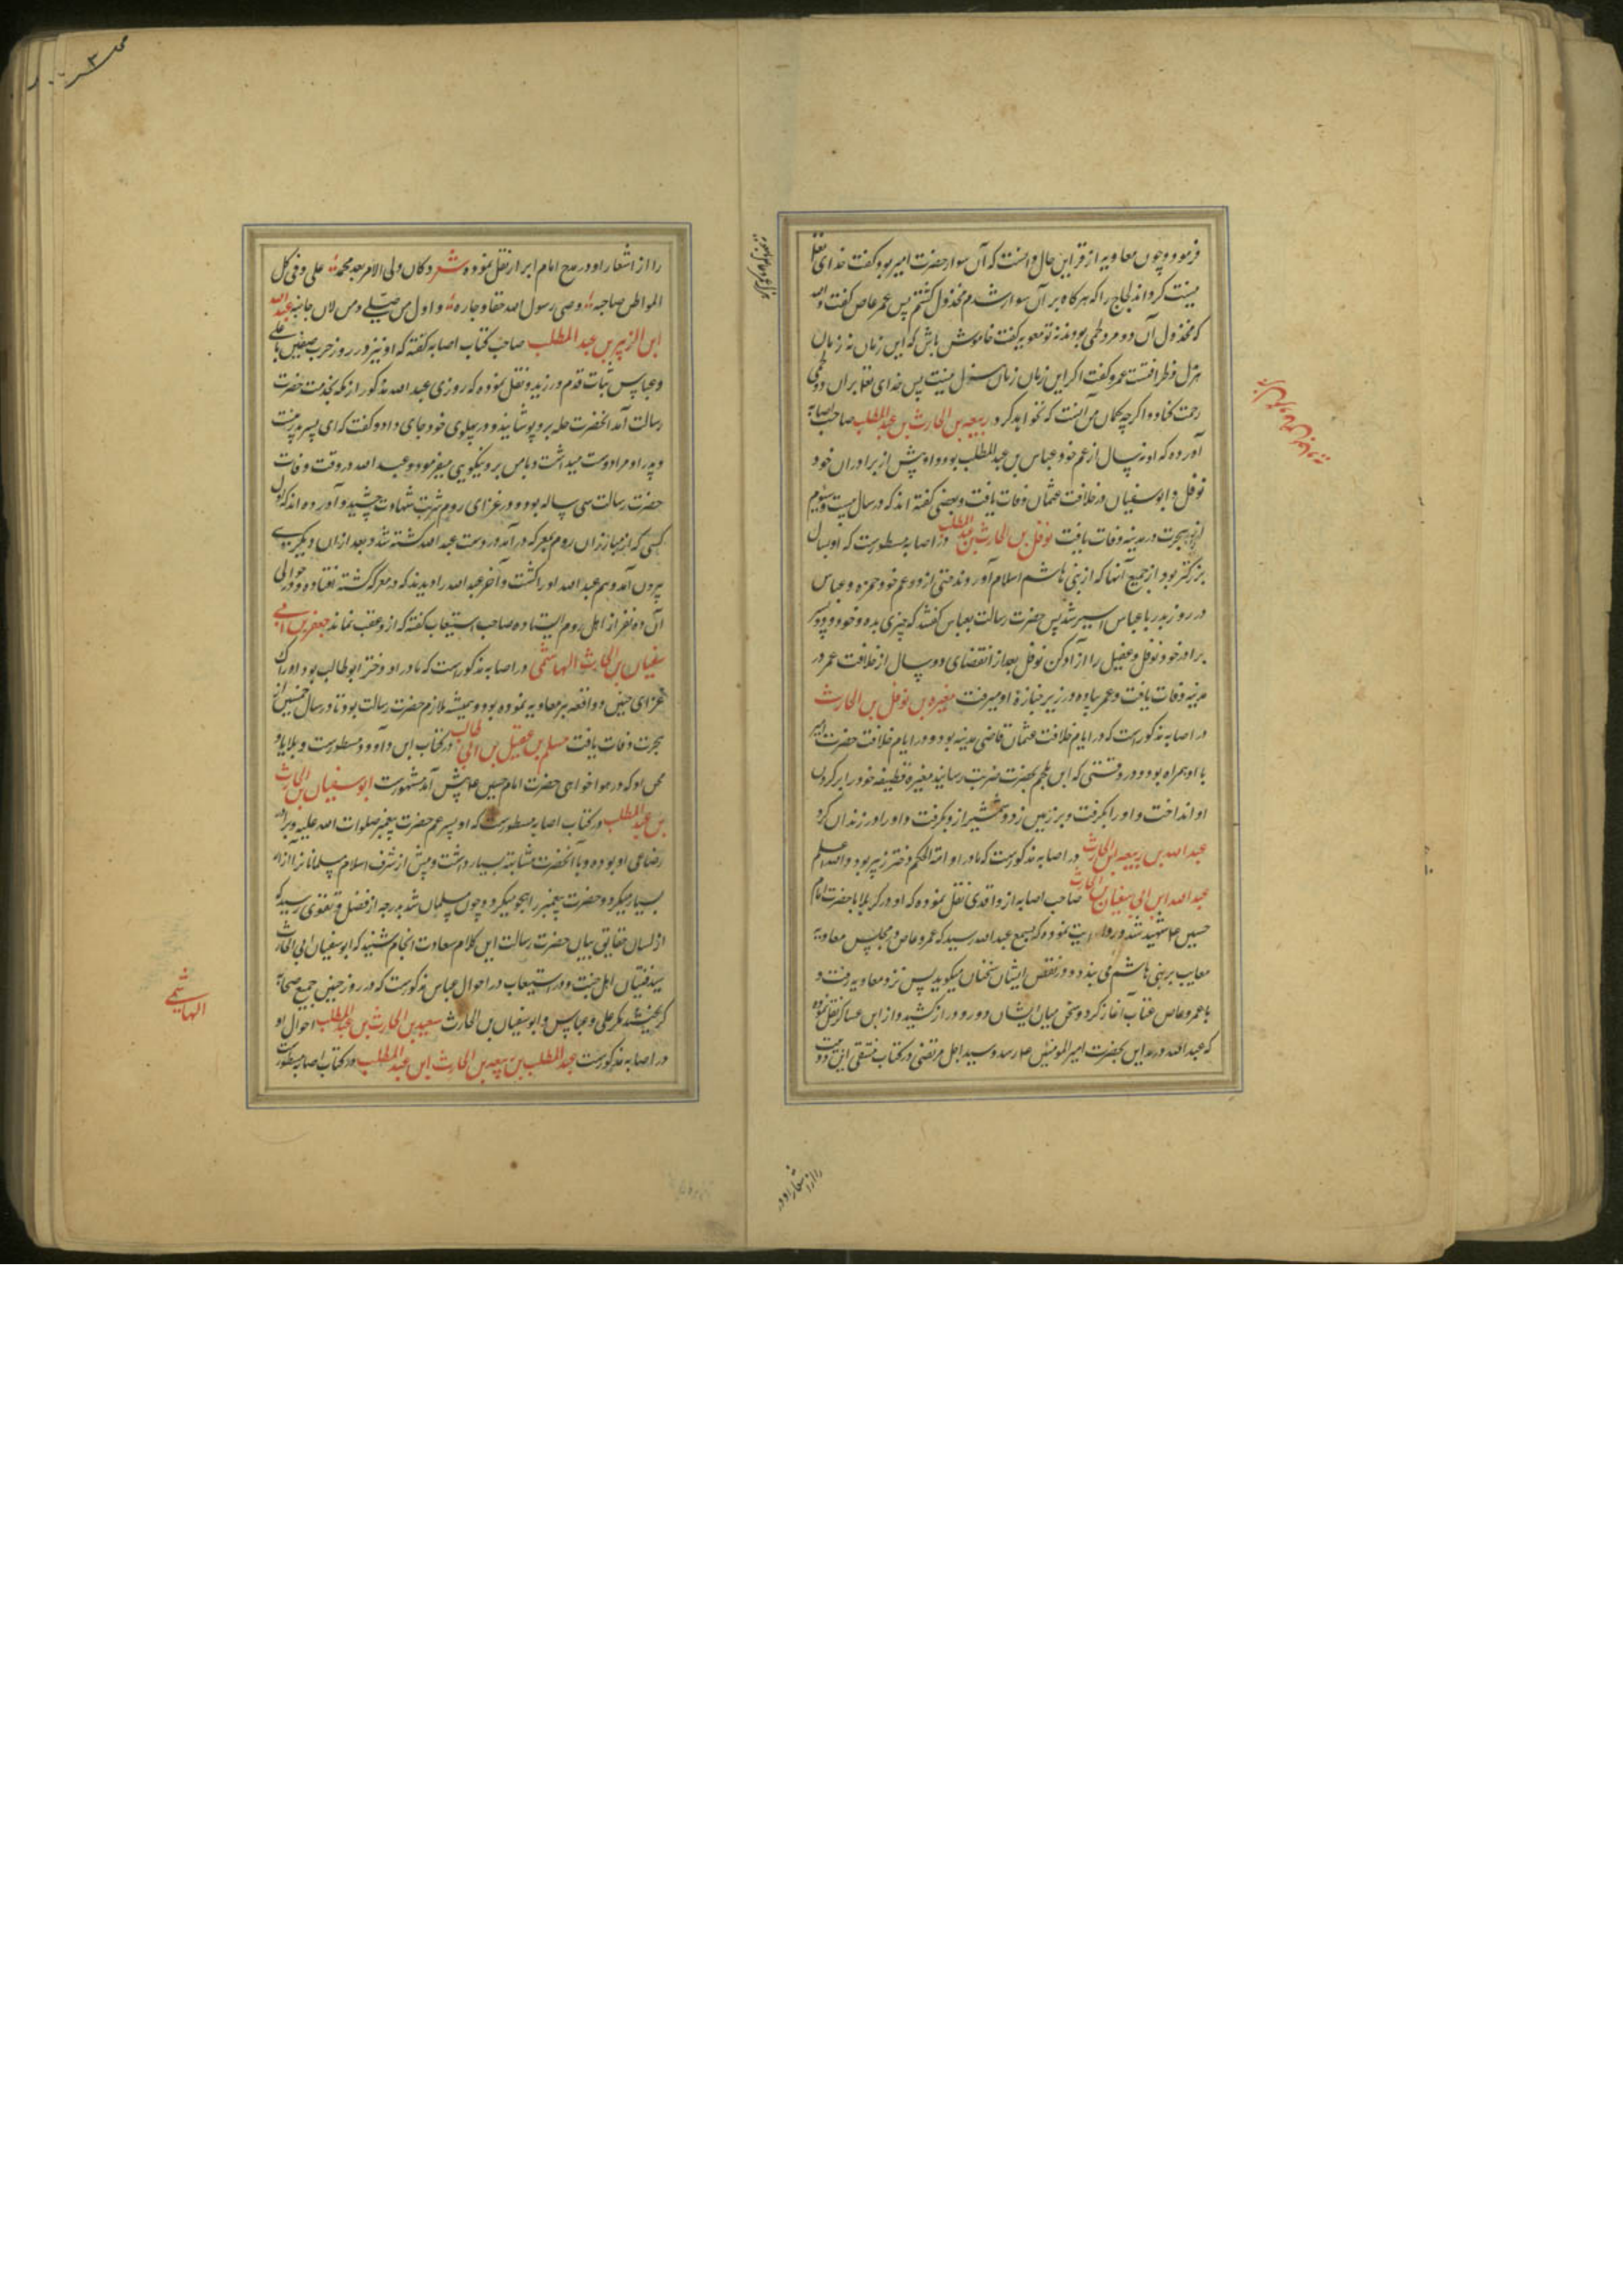 فرمود و چون معاویه از قراین حال دانست که آن سوار حضرت امیر بود گفت خدای تعالی
کرداند لجاج را که هرکاه بر آن سوار شدم مخذول کشتم پس عمر عاص گفت والله
که مخذول آن دو مرد لخمی بودند نه تو معویه گفت خاموش باش که این زمان نه زمان
هزل و ظرافتست عمرو گفت اگر این زمان زمان هزل نیست پس خدای تعالی بر آن دو لخمی
رحمت کناد و اگرچه کمان من آنست که نخواهد کرد ربیعه بن الحارث بن عبدالمطلب صاحب اصابه
آورده که او بسال از عم خود عباس بن عبدالمطلب بود و او پیش از برادران خود
نوفل و ابوسفیان در خلافت عثمان وفات یافت و بعضی گفته اند که در سال بیست و سیوم
از هجرت در مدینه وفات یافت نوفل بن الحارث بن عبدالمطلب در اصابه مسطورست که او بسال
بزرگتر بود از جمیع آنها که از بنی هاشم اسلام آوردند حتی از دو عم خود حمزه و عباس
در روز بدر با عباس اسیر شد پس حضرت رسالت بعباس گفتند که چیزی بده و خود و دو پسر
برادر خود نوفل و عقیل را آزاد کن نوفل بعد از انقضای دو سال از خلافت عمر در
مدینه وفات یافت و عمر پیاده در زیر جنازه او میرفت مغیره بن نوفل بن الحارث
در اصابه مذکورست که در ایام خلافت عثمان قاضی مدینه بود و در ایام خلافت حضرت امیر
با او همراه بود و در وقتی که ابن ملجم بحضرت ضربت رسانید مغیره قطیفه خود را بر کردن
او انداخت و او را بکرفت و بر زمین زد و شمشیر از و بکرفت و او را در زندان کرد
عبدالله بن ربیعه بن الحارث در اصابه مذکورست که مادر او امة الحکم دختر زبیر بود والله اعلم
عبدالله ابن ابی سفیان بن الحارث صاحب اصابه از واقدی نقل نموده که او در کربلا با حضرت امام
حسین ع شهید شد و روایت نموده که بسمع عبدالله رسید که عمرو عاص در مجلس معاویه
معایب بر بنی هاشم می بندد و در نقص ایشان سخنان میکوید پس نزد معاویه رفت و
با عمرو عاص عتاب آغاز کرد و سخن میان ایشان دور و دراز کشید و از ابن عساکر نقل نموده
که عبدالله در مداین بحضرت امیرالمومنین ع رسد و سید اجل مرتضی در کتاب منتقی این دو بیت
را از اشعار او در
را از اشعار او در مدح امام ابرار نقل نموده شعر و کان ولی الامر بعد محمد علی و فی کل
المواطن صاحبه وصی رسول الله حقا و جاره و اول من صلی و من لان جانبه عبدالله
ابن الزبیر بن عبدالمطلب صاحب کتاب اصابه گفته که او نیز در روز حرب حنین با علی
و عباس ثبات قدم ورزید و نقل نموده که روزی عبدالله مذکور از مکه بخدمت حضرت
رسالت آمد آنحضرت حله برو پوشانید و در پهلوی خود جای داد و گفت که ای پسر پدر منست
و پدر او مرا دوست میداشت و با من بر و نیکویی میفرمود و عبدالله در وقت وفات
حضرت رسالت سی ساله بود و در غزای روم شربت شهادت چشید و آورده اند که اول
کسی که از مبارزان روم بمعرکه در آمد در دست عبدالله کشته شد و بعد از آن دیگری
بیرون آمد و هم عبدالله او را کشت و آخر عبدالله را دیدند که در معرکه کشته افتاده و در حوالی
آن ده نفر از اهل روم افتاده صاحب استیعاب گفته که از و عقب نماند جعفر بن ابی
سفیان بن الحارث الهاشمی در اصابه مذکورست که مادر او دختر ابوطالب بود و ادراک
غزای حنین نموده بود و همیشه ملازم حضرت رسالت بود تا در سال خمسین از
هجرت وفات یافت مسلم بن عقیل بن ابی طالب در کتاب ابن داوود مسطورست و بلایا و
محن او که در هوا خواهی حضرت امام حسین ع پیش آمد مشهورست ابوسفیان بن الحارث
بن عبدالمطلب در کتاب اصابه مسطورست که او پسر عم حضرت پیغمبر صلوات الله علیه و برادر
رضاعی او بوده و با آنحضرت مشابهت بسیار داشت و پیش از شرف اسلام مسلمانانرا آزار
بسیار میکرد و حضرت پیغمبر را هجو میکرد و چون مسلمان شد بدرجه از فضل و تقوی رسید که
از لسان حقایق بیان حضرت رسالت این کلام سعادت انجام شنید که ابوسفیان ابن الحارث
سید فتیان اهل جنت و در استیعاب در احوال عباس مذکورست که در روز حنین جمیع صحابه
کریختند مکر علی و عباس و ابوسفیان بن الحارث سعید بن الحارث بن عبدالمطلب احوال او
در اصابه مذکورست عبدالمطلب بن ربیعه بن الحارث ابن عبدالمطلب در کتاب اصابه مسطورست
الهاشمی